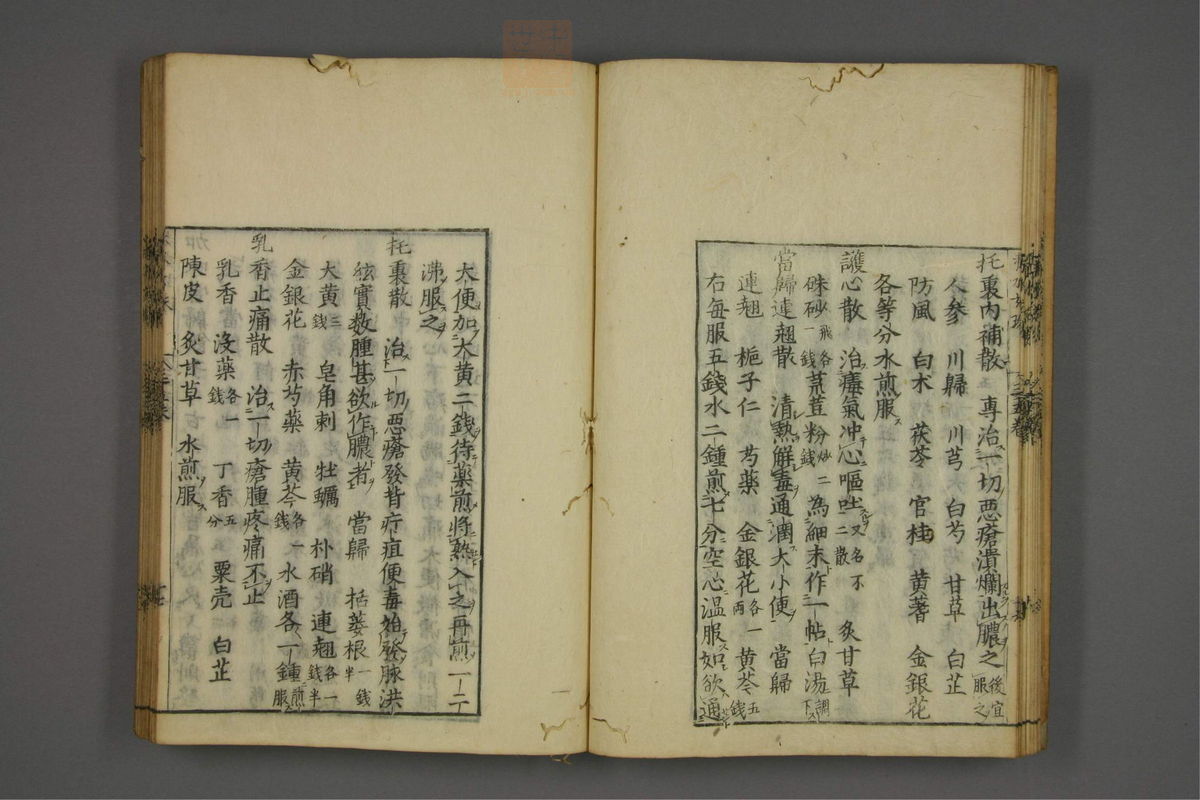 托裏内補散 專治一切惡瘡潰爛出膿之後宜服之
人參 川歸 川芎 白芍 甘草 白芷
防風 白朮 茯苓 官桂 黄蓍 金銀花
各等分水煎服
護心散 治毒氣冲心嘔吐又名不二散 炙甘草
硃砂飛各一錢 荒荳粉炒二分錢 為細末作一帖白湯調下
當歸連翹散 清熱解毒通潤大小便 當歸
連翹 梔子仁 芍藥 金銀花各一兩 黄芩五錢
右每服五錢水二鍾煎七分空心温服如欲通
大便加大黄二錢待藥煎將熟入之再煎一二
沸服之
托裏散 治一切惡瘡發背疔疽便毒始發脉洪
弦實数腫甚欲作膿者 當歸 栝蔞根一錢半
大黄三錢 皂角刺 牡蠣 朴硝 連翹各一錢半
金銀花 赤芍藥 黄芩各一錢 水酒各一鍾煎服
乳香止痛散 治一切瘡腫疼痛不止
乳香 没藥各一錢 丁香五分 粟壳 白芷
陳皮 炙甘草 水煎服